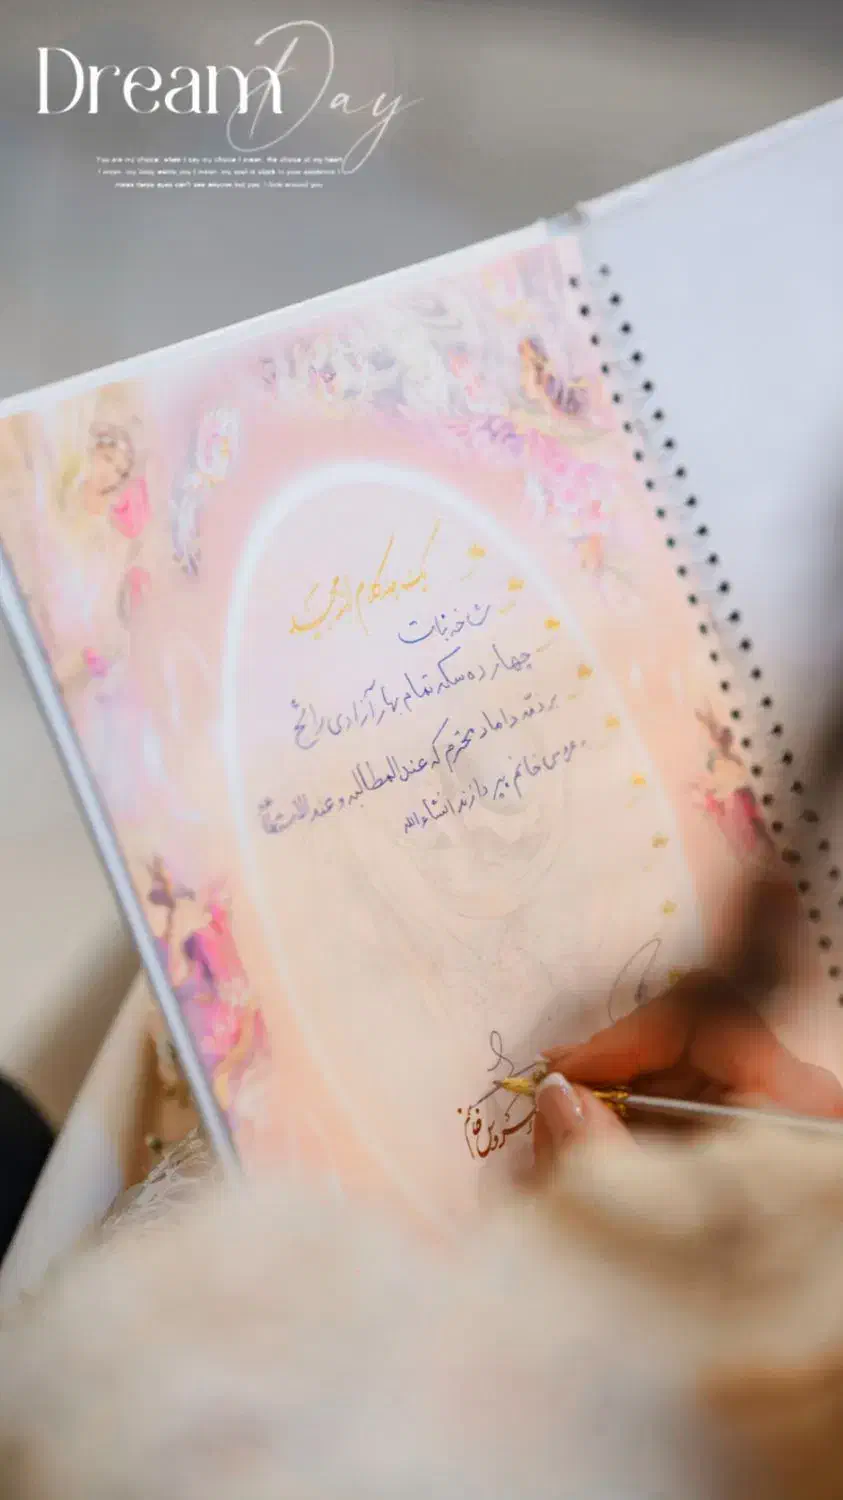 Dream Day
You are my choice; when I say my choice I mean, the choice of my heart
I mean, my body wants you I mean, my soul is stuck to your existence I
mean these eyes can't see anyone but you, I look around you
یک جلد کلام الله مجید
شاخه نبات
چهارده سکه تمام بهار آزادی رائج
بر ذمّه داماد محترم که عندالمطالبه و عندالاستطاعه
به عروس خانم بپردازند انشاءالله
عروس خانم